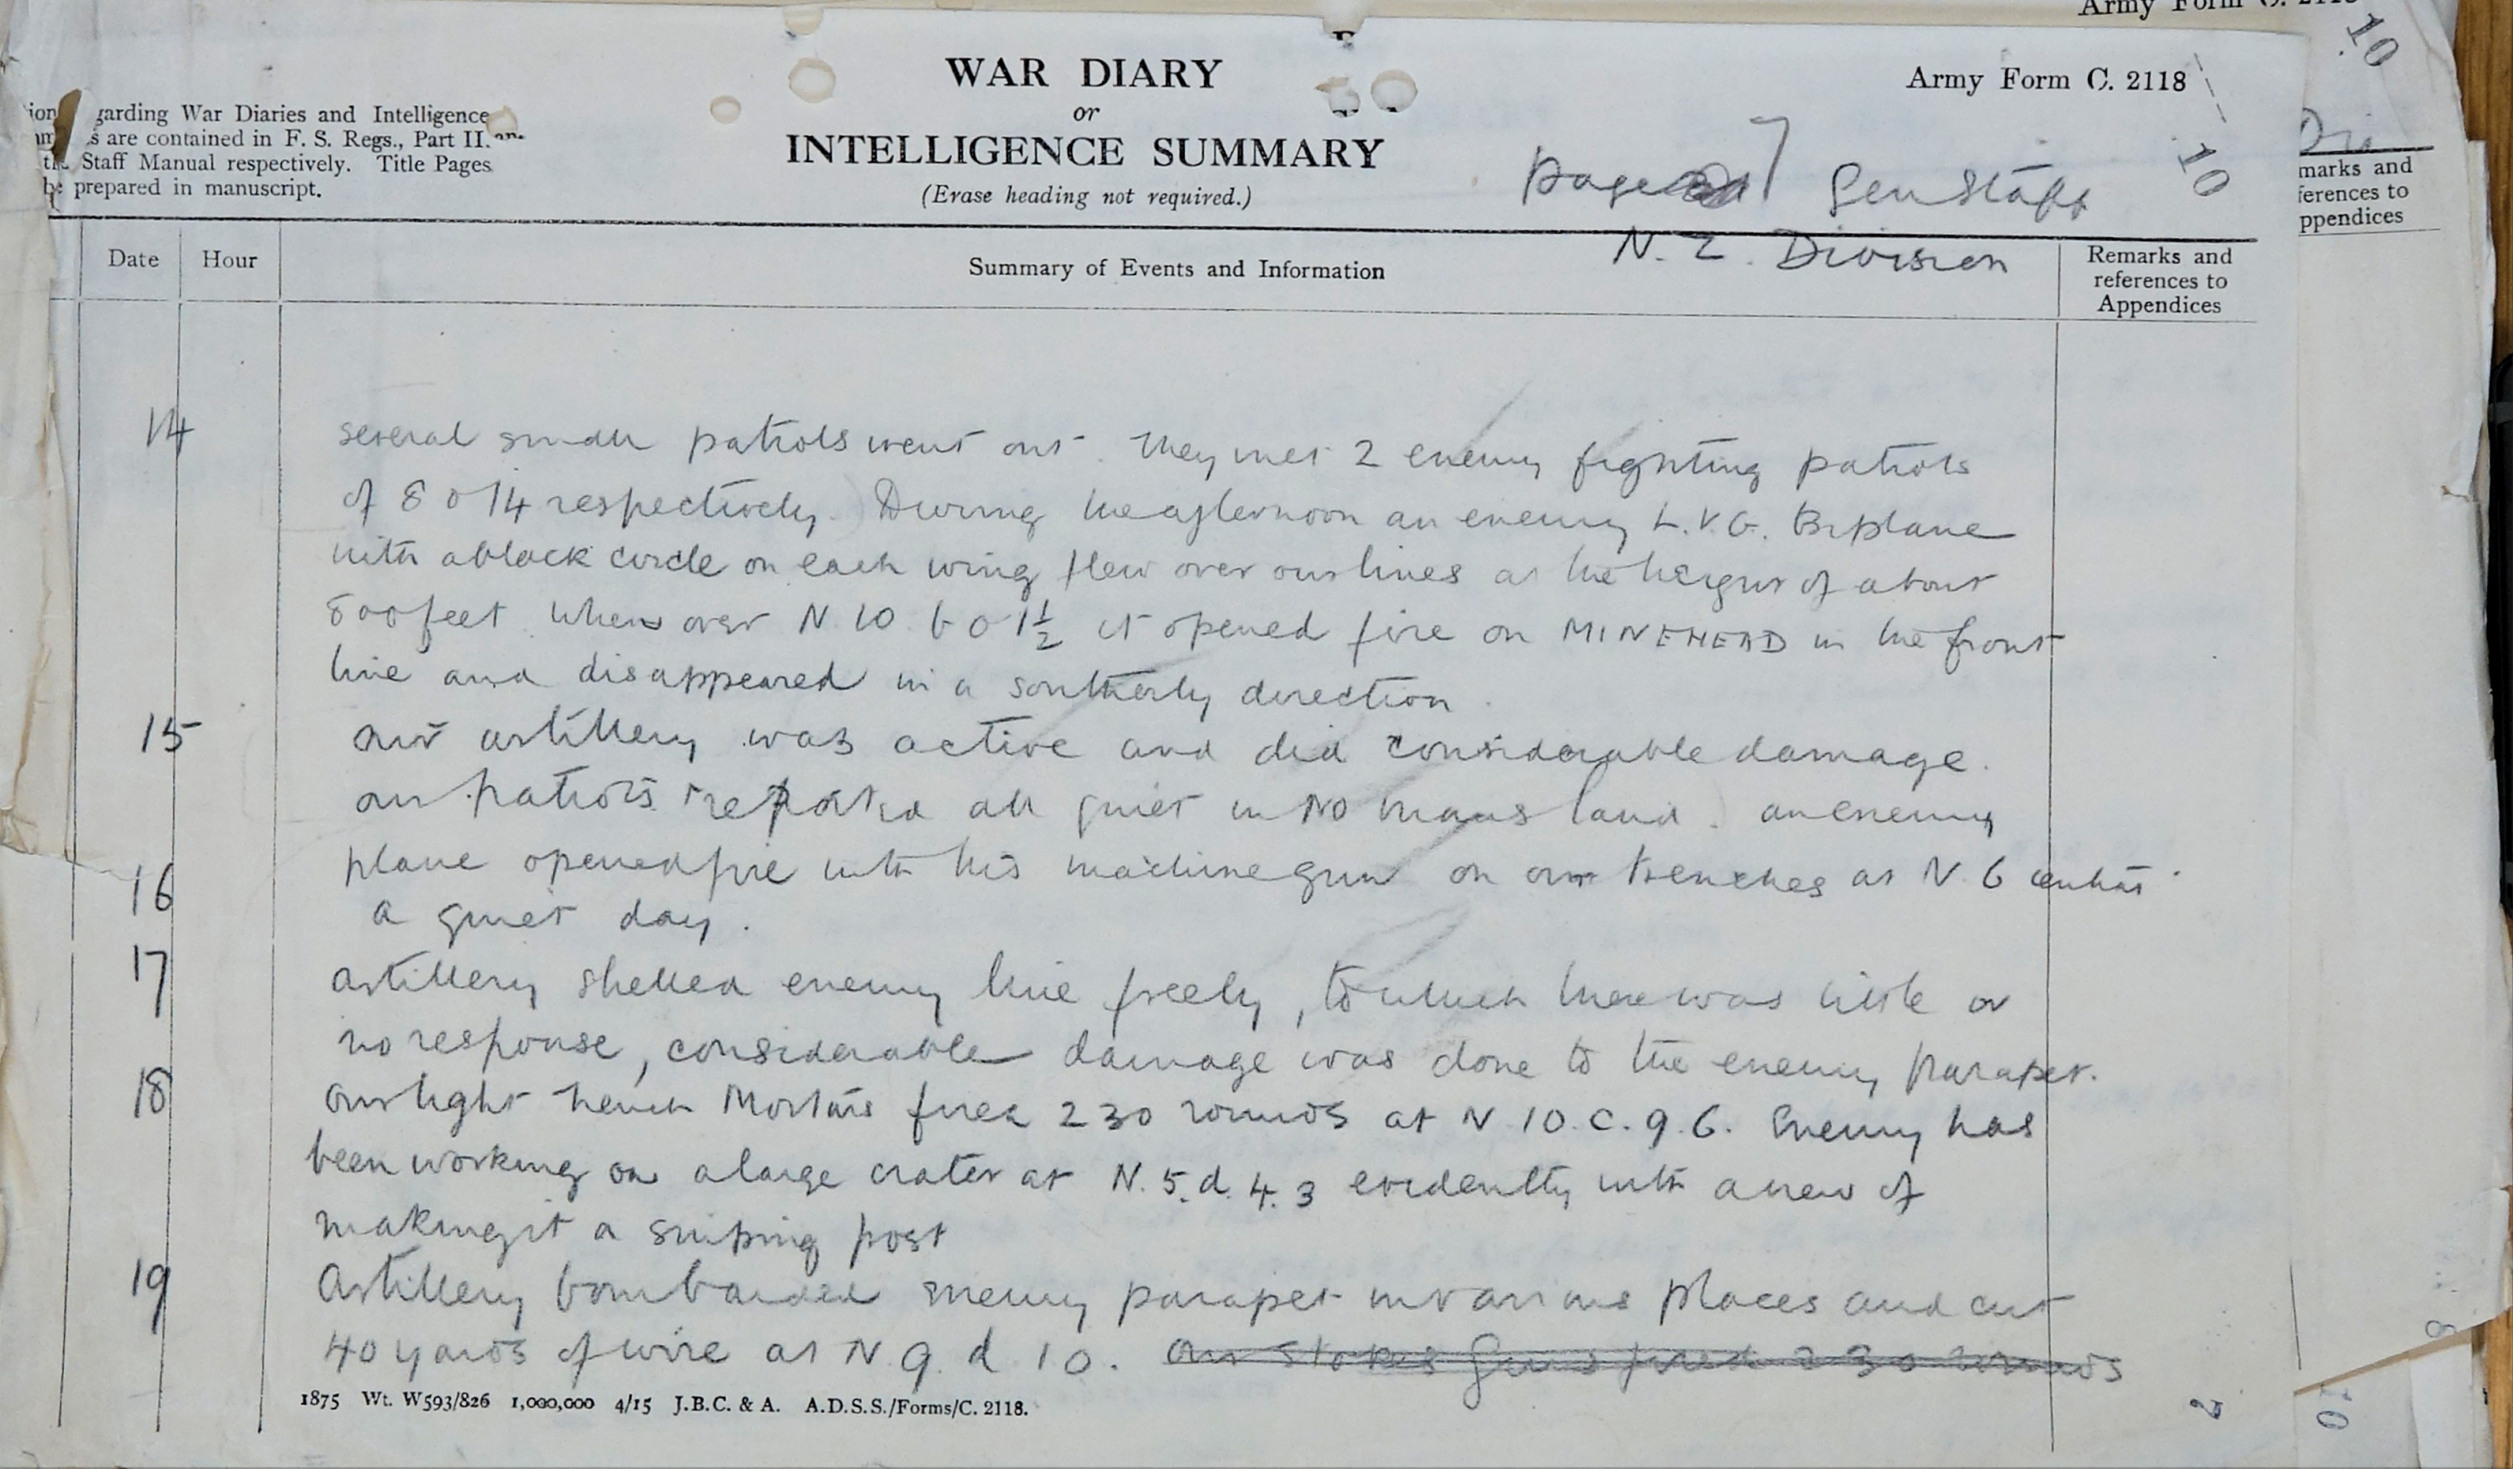 Army Form C. 2118
10
WAR DIARY
or
INTELLIGENCE SUMMARY
(Erase heading not required.)
Army Form C. 2118
10
garding War Diaries and Intelligence
s are contained in F. S. Regs., Part II.
Staff Manual respectively. Title Pages
be prepared in manuscript.
page 7 Gen Staff
N. Z. Division
Date Hour Summary of Events and Information Remarks and
references to
Appendices
marks and
ferences to
ppendices
14 several small patrols went out. They met 2 enemy fighting patrols
of 8 & 14 respectively. During the afternoon an enemy L.V.G. Biplane
with a black circle on each wing flew over our lines at the height of about
800 feet. When over N 10 b 0 1½ it opened fire on MINEHEAD in the front
line and disappeared in a southerly direction.
15 our artillery was active and did considerable damage.
our patrols reported all quiet in No mans land. an enemy
plane opened fire with his machine gun on our trenches at N. 6 central.
16 a quiet day.
17 artillery shelled enemy line freely, to which there was little or
no response, considerable damage was done to the enemy parapet.
18 our light trench Mortars fired 230 rounds at N 10. c. 9. 6. Enemy has
been working on a large crater at N. 5. d. 4. 3 evidently with a view of
making it a sniping post
19 Artillery bombarded enemy parapet in various places and cut
40 yards of wire at N 9. d 10. our Stokes Guns fired 230 rounds
1875 Wt. W593/826 1,000,000 4/15 J.B.C. & A. A.D.S.S./Forms/C. 2118.
2
10